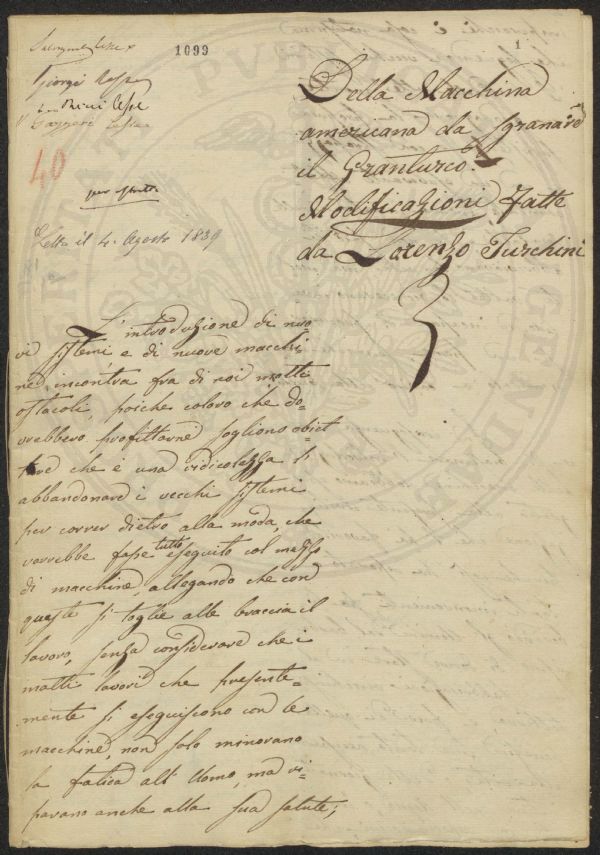 1099
1
Giorgi lesse
40
per estratto
Letto il 4. Agosto 1839
Della Macchina
americana da sgranare
il Granturco.
Modificazioni fatte
da Lorenzo Turchini
L'introduzione di nuo
vi sistemi e di nuove macchi
ne, incontra fra di noi molti
ostacoli, poiche coloro che do-
vrebbero profittarne sogliono obiet
tare che è una ridicolezza li
abbandonare i vecchi sistemi
per correr dietro alla moda, che
vorrebbe fosse tutto eseguito col mezzo
di macchine, allegando che con
queste si toglie alle braccia il
lavoro, senza considerare che i
molti lavori che presente-
mente si eseguiscono con le
macchine, non solo minorano
la fatica all'Uomo, ma ri-
parano anche alla sua salute;